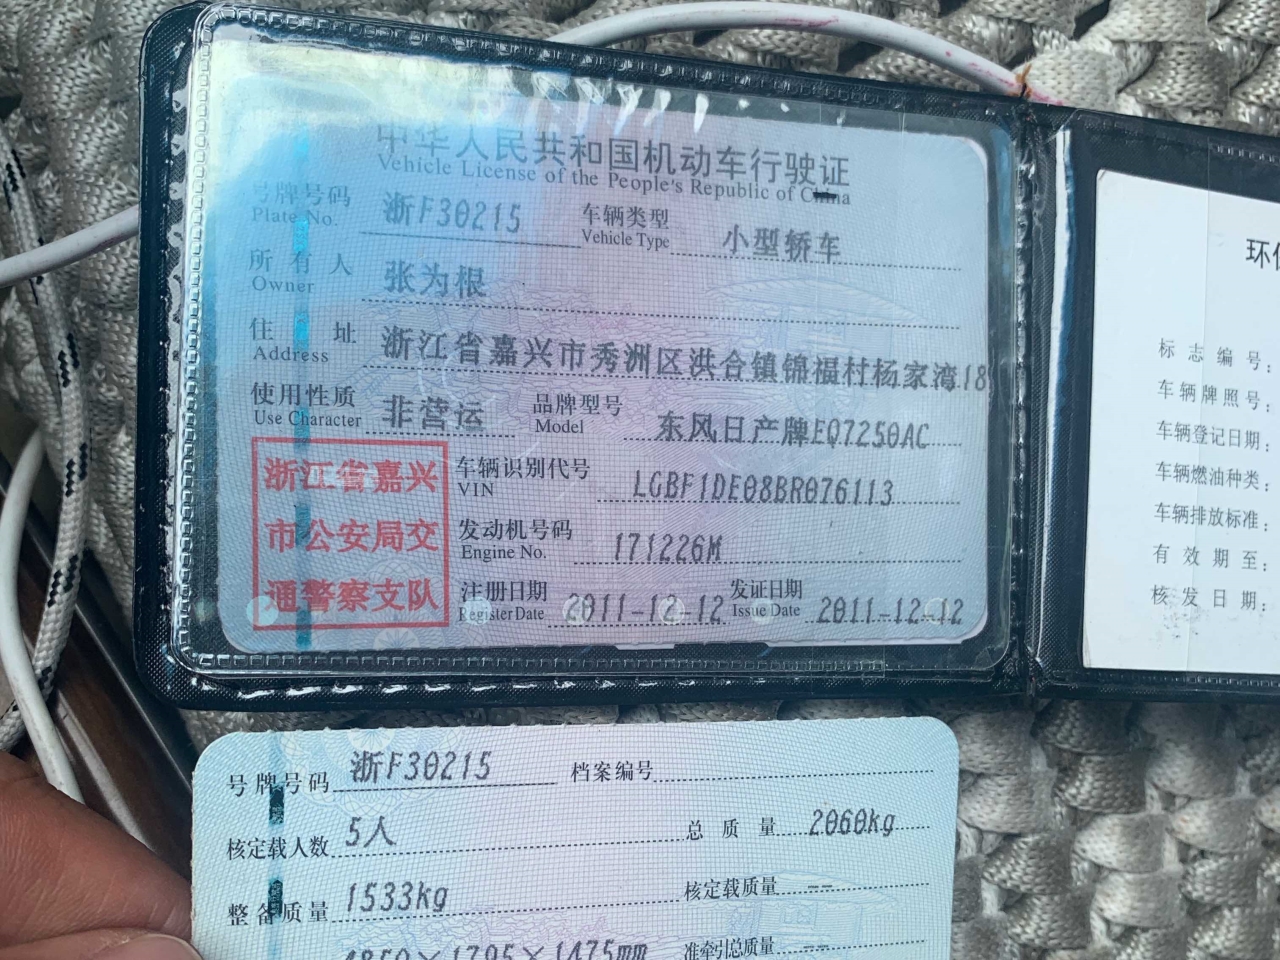 中华人民共和国机动车行驶证
Vehicle License of the People's Republic of China
号牌号码 浙F30215 车辆类型 小型轿车
Plate No. Vehicle Type
所有人 张为根
Owner
住址 浙江省嘉兴市秀洲区洪合镇锦福村杨家湾18
Address
使用性质 非营运 品牌型号 东风日产牌EQ7250AC
Use Character Model
浙江省嘉兴
市公安局交
通警察支队
车辆识别代号 LGBF1DE08BR076113
VIN
发动机号码 171226M
Engine No.
注册日期 2011-12-12 发证日期 2011-12-12
Register Date Issue Date
环
标志编号:
车辆牌照号:
车辆登记日期:
车辆燃油种类:
车辆排放标准:
有效期至:
核发日期:
号牌号码 浙F30215 档案编号
核定载人数 5人 总质量 2060kg
整备质量 1533kg 核定载质量 --
4850×1795×1475mm 准牵引总质量 --